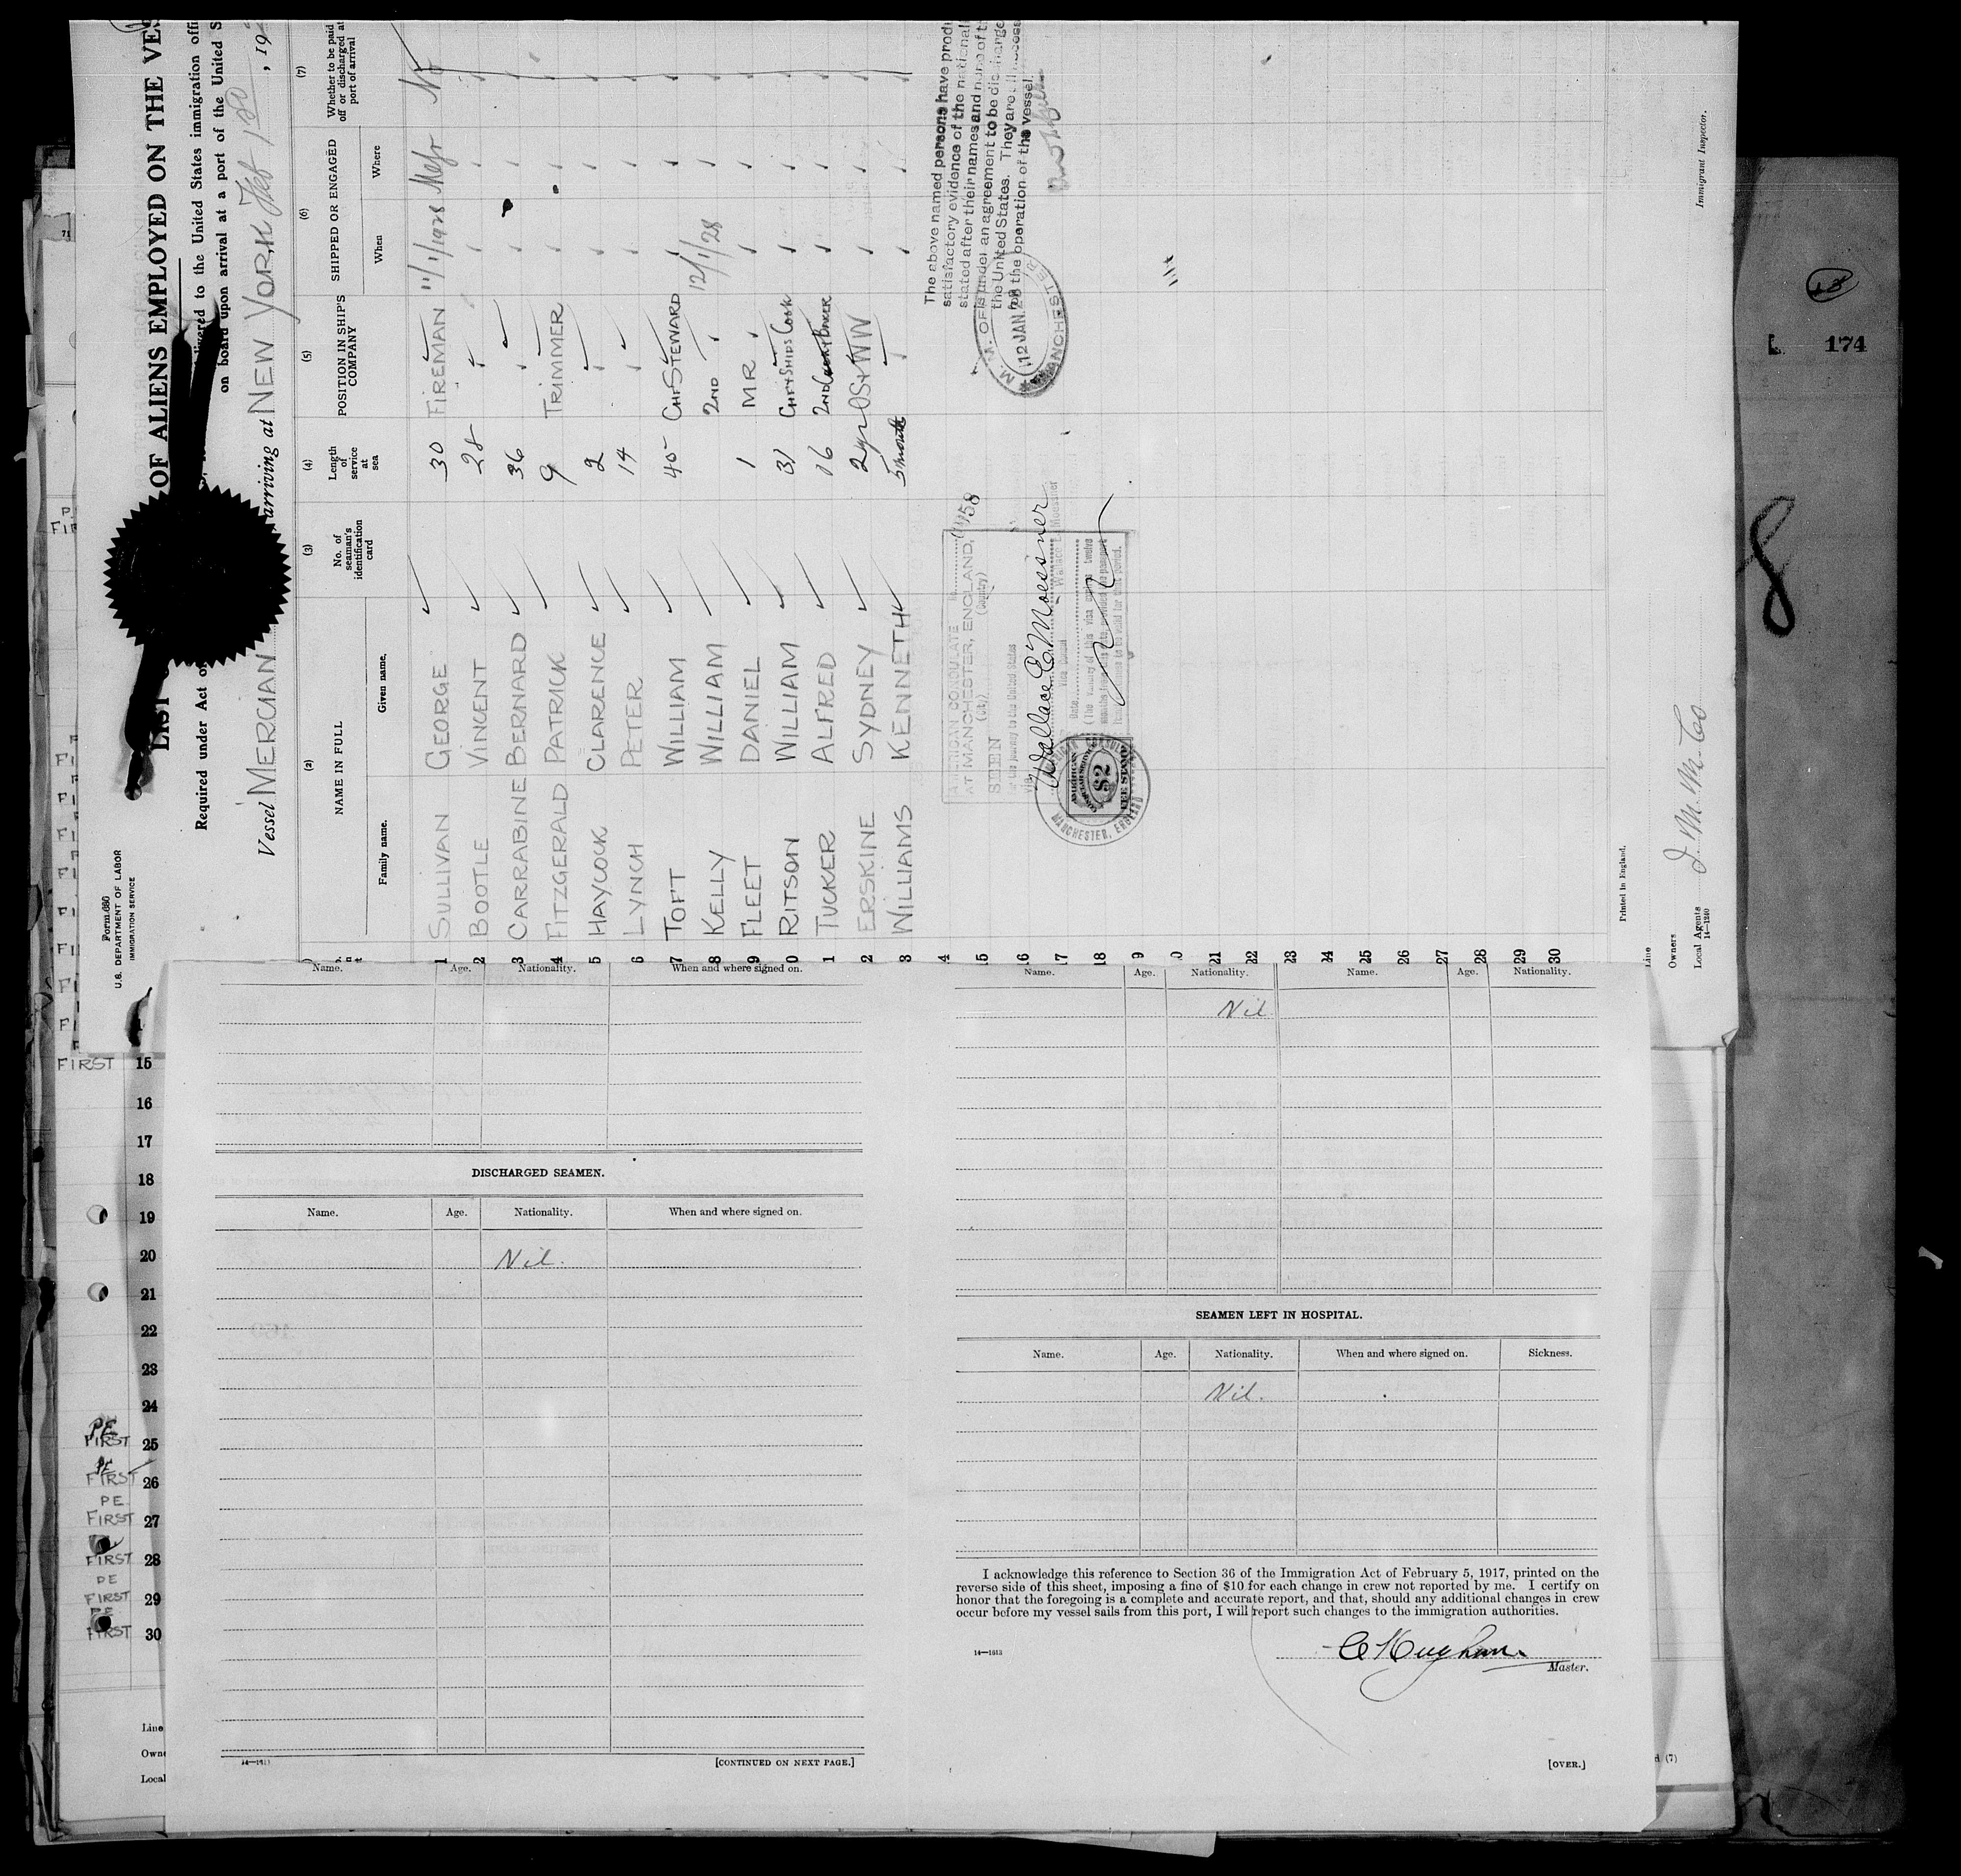 Form 680
U.S. DEPARTMENT OF LABOR
IMMIGRATION SERVICE
LIST OF ALIENS EMPLOYED ON THE VES
Required under Act of
livered to the United States immigration offi
on board upon arrival at a port of the United S
Vessel MERCIAN arriving at NEW YORK , 19
(2) (3) (4) (5) (6) (7)
NAME IN FULL
Family name. Given name.
No. of seaman's identification card
Length of service at sea
POSITION IN SHIP'S COMPANY
SHIPPED OR ENGAGED
When Where
Whether to be paid off or discharged at port of arrival
1 SULLIVAN GEORGE 30 FIREMAN 11/1/1928 No
2 BOOTLE VINCENT 28
3 CARRABINE BERNARD 36
4 FITZGERALD PATRICK 9 TRIMMER
5 HAYCOCK CLARENCE 2
6 LYNCH PETER 14
7 TOFT WILLIAM 40 CHF STEWARD
8 KELLY WILLIAM 2ND 12/1/28
9 FLEET DANIEL 1 MR
0 RITSON WILLIAM 31 CHF & SHIPS COOK
1 TUCKER ALFRED 16 2ND COOK & BAKER
2 ERSKINE SYDNEY 2 yr
3 WILLIAMS KENNETH 5 month
4
15
16
17
18
9
0
21
22
23
24
25
26
27
28
29
30
The above named persons have prod
satisfactory evidence of the national
stated after their names and none of th
is under an agreement to be discharge
the United States. They are all necess
for the operation of the vessel.
M. M. OFF
12 JAN. 28
MANCHESTER
AMERICAN CONSULATE No. 1158
AT MANCHESTER, ENGLAND,
(City) (Country)
SEEN
for the journey to the United States
Wallace E. Moessner
Wallace E. Moessner
Vice Consul
Date
(The validity of this visa expires twelve
AMERICAN CONSULAR SERVICE
$2
FEE STAMP
MANCHESTER, ENGLAND
Printed in England.
Line
Owners
Local Agents
14-1240
Immigrant Inspector.
174
71
Name. Age. Nationality. When and where signed on.
DISCHARGED SEAMEN.
Name. Age. Nationality. When and where signed on.
Nil.
[CONTINUED ON NEXT PAGE.]
Name. Age. Nationality. Name. Age. Nationality.
Nil
SEAMEN LEFT IN HOSPITAL.
Name. Age. Nationality. When and where signed on. Sickness.
Nil.
I acknowledge this reference to Section 36 of the Immigration Act of February 5, 1917, printed on the
reverse side of this sheet, imposing a fine of $10 for each change in crew not reported by me. I certify on
honor that the foregoing is a complete and accurate report, and that, should any additional changes in crew
occur before my vessel sails from this port, I will report such changes to the immigration authorities.
14—1613
Master.
[OVER.]
FIRST 15
16
17
18
19
20
21
22
23
24
PE
FIRST 25
PE
FIRST 26
PE
FIRST 27
FIRST 28
PE
FIRST 29
PE
FIRST 30
Line
Owne
Local
d (7)